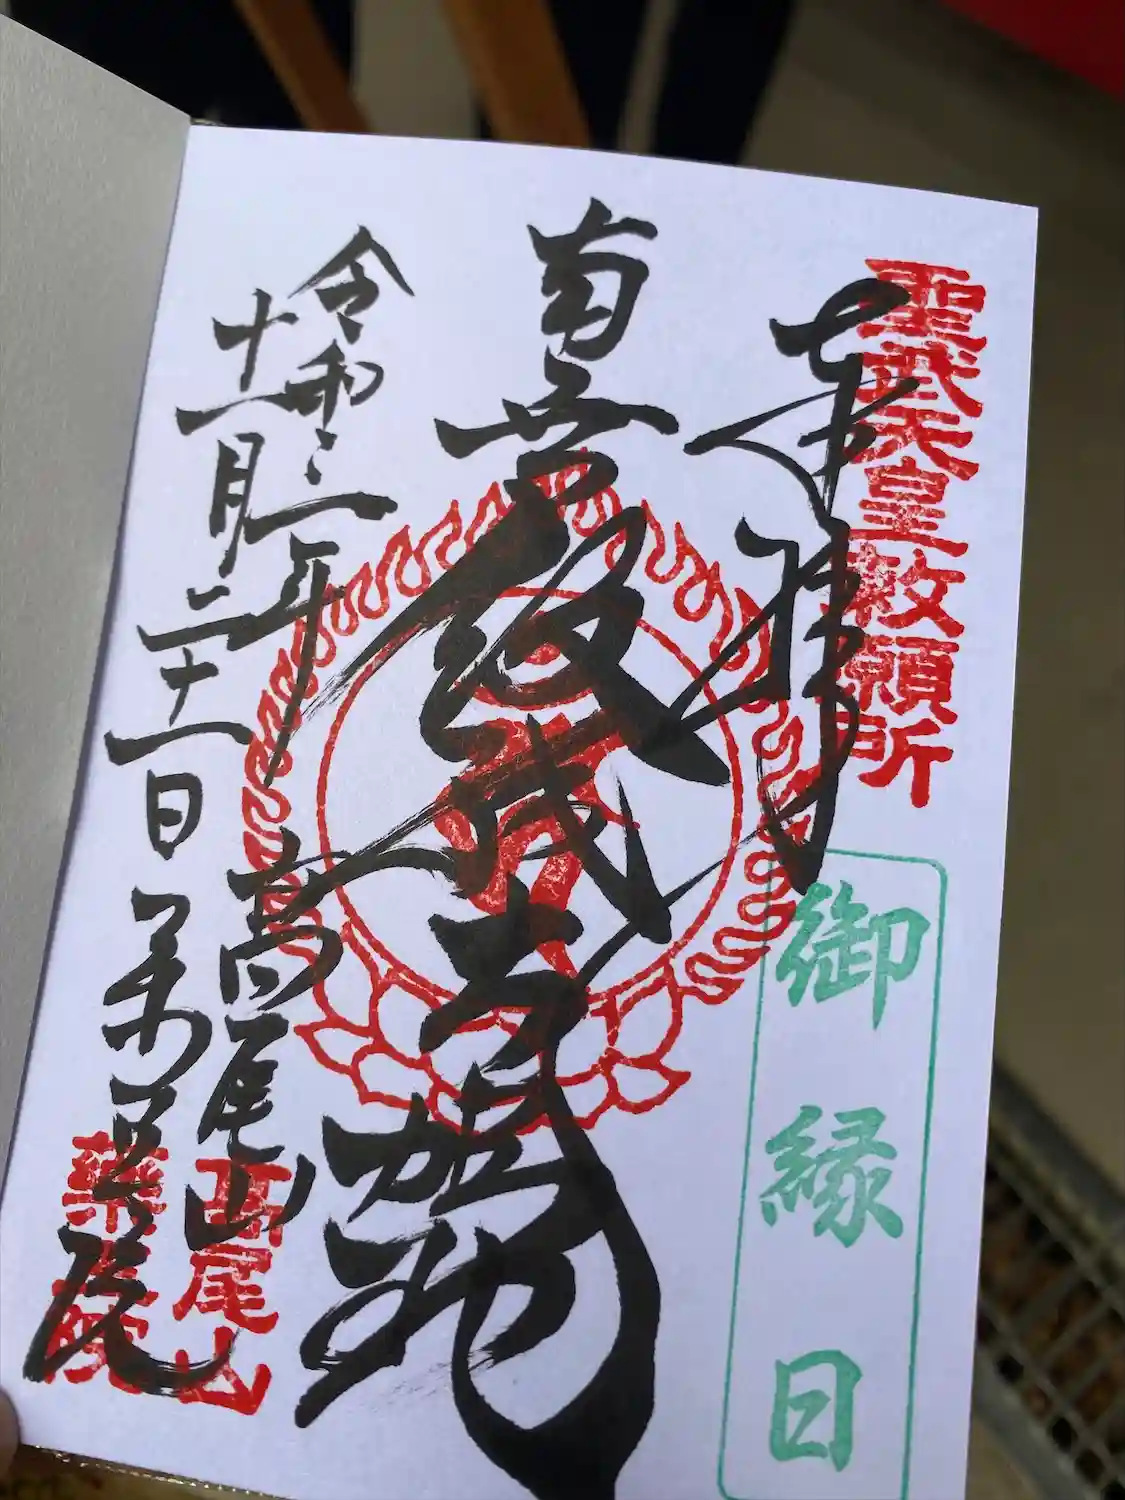 聖武天皇敕願所
奉拝
御縁日
南無飯縄大権現
令和二年
十一月二十一日
高尾山
薬王院
高尾山
薬王院